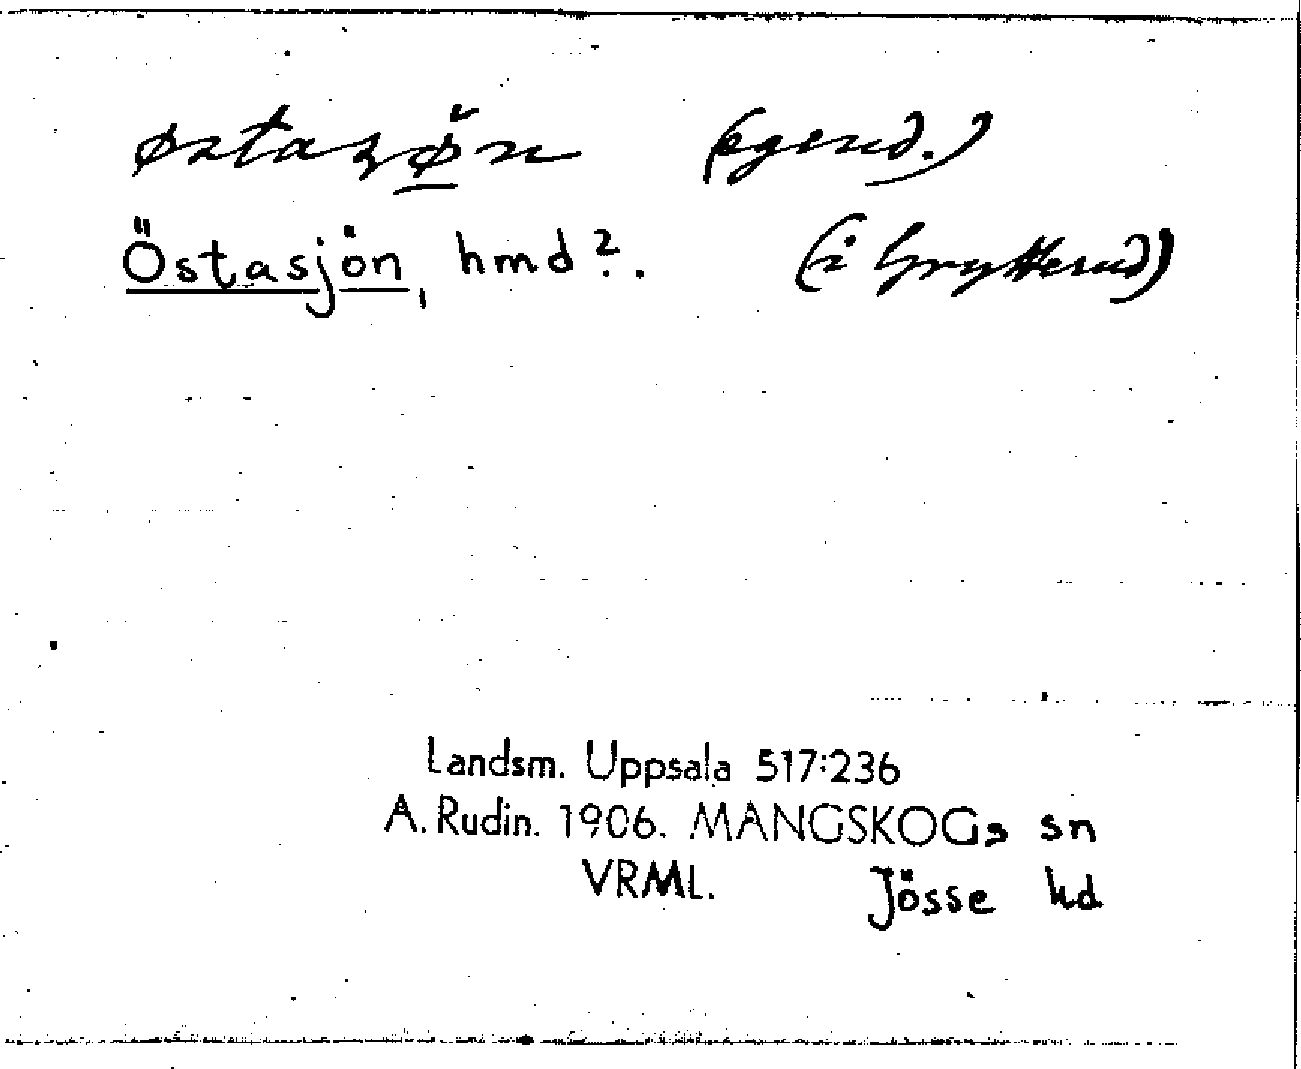 (egend.)
Östasjön, hmd?.
(i Grytterud)
Landsm. Uppsala 517:236
A. Rudin. 1906. MANGSKOGs sn
VRML. Jösse hd